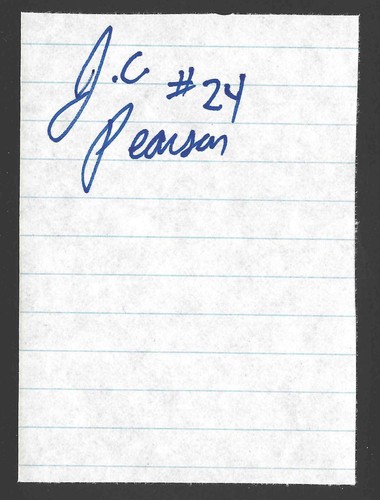 J.C #24
Pearson